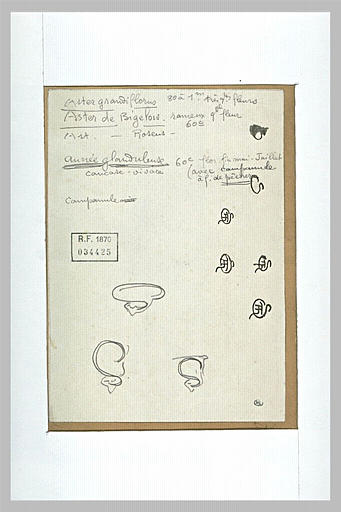 Aster grandiflorus 80 à 1m très gdes fleurs
Aster de Bigelow. rameux gde fleur
60c
Ast. — Roseus -
Aunée glanduleuse 60c flor fin mai - Juillet
Caucase - vivace (avec campanule
à f. de pêcher
Campanule
R.F. 1870
034425